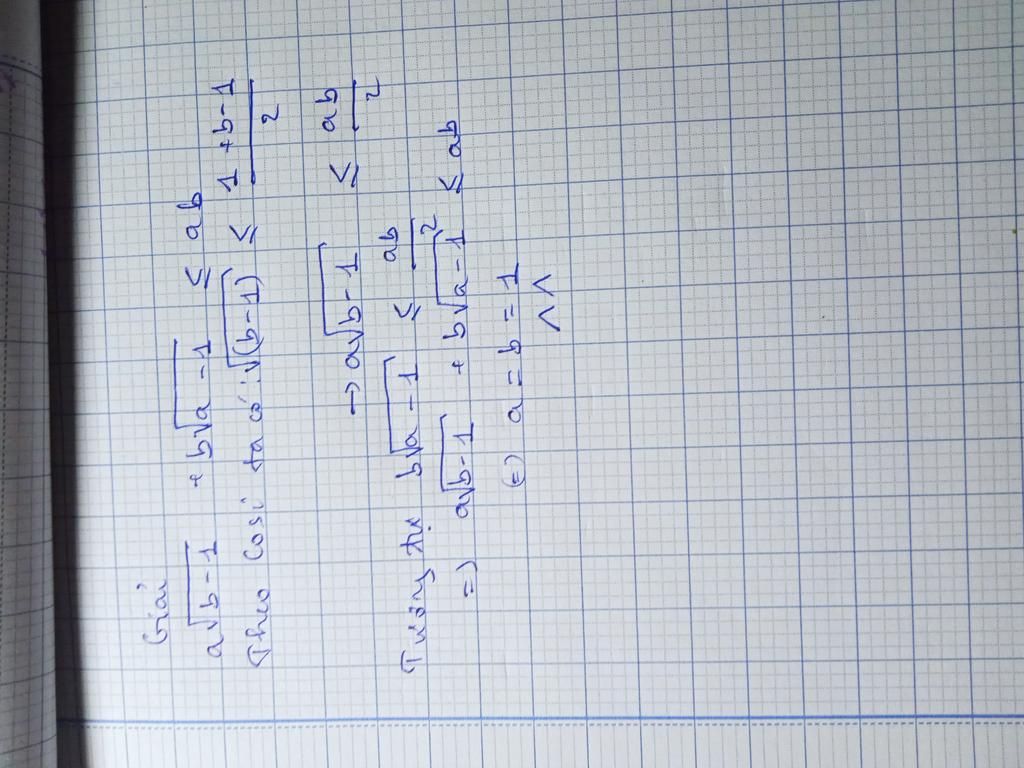 Giải
a√(b-1) + b√(a-1) ≤ ab
Theo Cosi ta có: √(b-1) ≤ (1+b-1)/2
→ a√(b-1) ≤ ab/2
Tương tự b√(a-1) ≤ ab/2
=) a√(b-1) + b√(a-1) ≤ ab
(=) a=b=1
^^